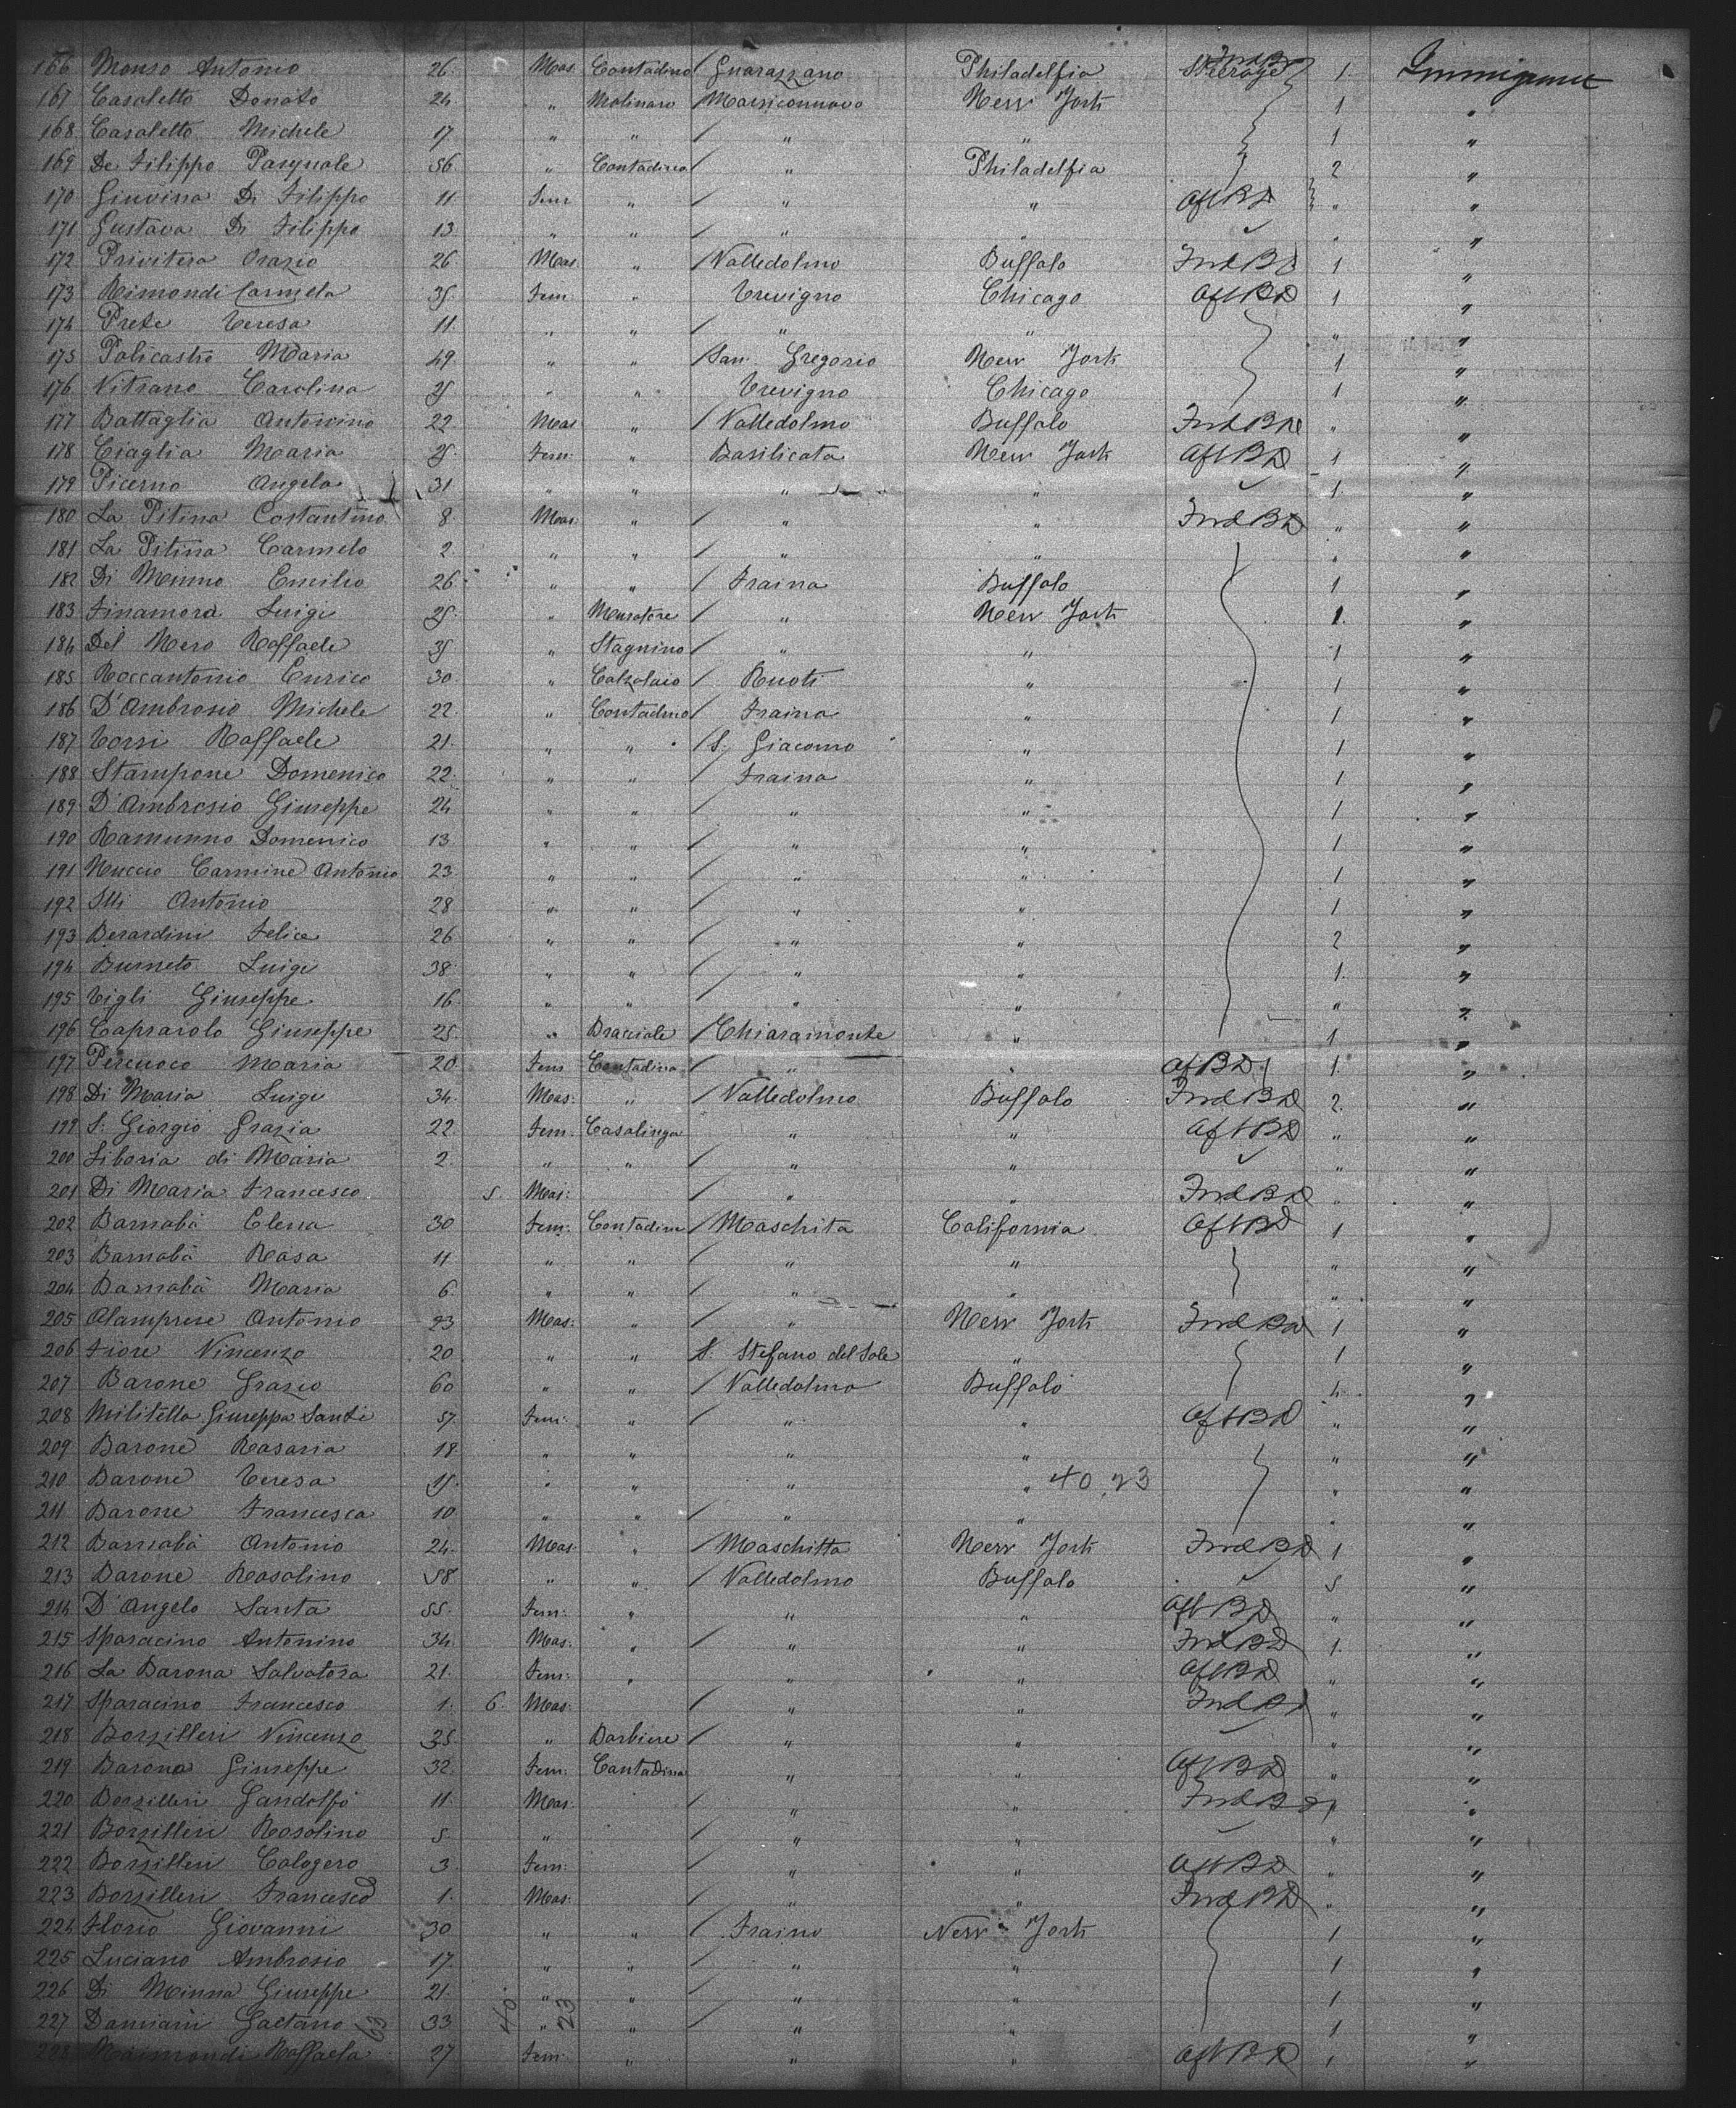 166 Monso Antonio 26. Mas. Contadino / Guarazzano Philadelfia Steerage 1. Immigrant
167 Casaletto Donato 24 " Molinaro / Marsiconuovo New York 1 "
168 Casaletto Michele 17 " " / " 1 "
169 De Filippo Pasquale 56 " Contadino / " Philadelfia 2 "
170 Di Filippo 11 Fem " / " " Aft BD " "
171 Gustava Di Filippo 13 " " / " " " "
172 Privitera Orazio 26 Mas. " / Valledolmo Buffalo Fwd BD 1 "
173 Rimondi Carmela 35 Fem. " Trevigno Chicago Aft BD 1 "
174 Prete Teresa 11. " " / " " " "
175 Policastro Maria 49. " " / San Gregorio New York 1 "
176 Vitrano Carolina 25 " " Trevigno Chicago 1 "
177 Battaglia Antonino 22 Mas " / Valledolmo Buffalo Fwd BD " "
178 Ciaglia Maria 25. Fem: " Basilicata New York Aft BD 1 "
179 Picerno Angela 31 " " " " 1. "
180 La Pitina Costantino 8. Mas: " / " " Fwd BD " "
181 La Pitina Carmelo 2. " " / " " " "
182 Di Menno Emilio 26. " " / Fraina Buffalo 1 "
183 Finamora Luigi 25. " Muratore / " New York 1. "
184 Del Nero Raffaele 35 " Stagnino / " " 1 "
185 Roccantonio Enrico 30. " Calzolaio / Ruoti " 1 "
186 D'Ambrosio Michele 22. " Contadino / Fraina " 1 "
187 Torsi Raffaele 21. " " / S. Giacomo " 1 "
188 Stampone Domenico 22. " " / Fraina " 1 "
189 D'Ambrosio Giuseppe 24 " " / " " 1 "
190 Ramunno Domenico 13 " " / " " 1 "
191 Nuccio Carmine Antonio 23 " " / " " 1 "
192 Antonio 28 " " / " " 1 "
193 Berardini Felice 26 " " / " " 2 "
194 Burneto Luigi 38. " " / " " 1. "
195 Tigli Giuseppe 16. " " / " " " "
196 Caprarolo Giuseppe 25. " Bracciale / Chiaramonte " 1 "
197 Percuoco Maria 20 Fem Contadina / " " Aft BD 1. "
198 Di Maria Luigi 34. Mas: " / Valledolmo Buffalo Fwd BD 2. "
199 S. Giorgio Grazia 22. Fem. Casalinga " " Aft BD " "
200 Liboria di Maria 2. " " / " " " "
201 Di Maria Francesco 5. Mas: / " " Fwd BD " "
202 Barnabà Elena 30 Fem: Contadina / Maschita California Aft BD 1 "
203 Barnabà Rosa 11 " " / " " " "
204 Barnabà Maria 6. " " / " " " "
205 Alamprese Antonio 23 Mas: " / " New York Fwd BD 1 "
206 Fiore Vincenzo 20 " " S. Stefano del Sole " 1 "
207 Barone Grazio 60 " " / Valledolmo Buffalo 4. "
208 Militello Giuseppa Santi 57. Fem: " / " " Aft BD " "
209 Barone Rosaria 18 " " " " " "
210 Barone Teresa 15. " " " " 40,23 " "
211 Barone Francesca 10 " " / " " " "
212 Barnabà Antonio 24. Mas. " / Maschitta New York Fwd BD 1 "
213 Barone Rosolino 58 " " / Valledolmo Buffalo 5 "
214 D'Angelo Santa 55. Fem: " " " Aft BD " "
215 Sparacino Antonino 34. Mas: " / " " Fwd BD 1. "
216 La Barona Salvatora 21. Fem: " " " Aft BD " "
217 Sparacino Francesco 1. 6. Mas: / " " Fwd BD " "
218 Borzilleri Vincenzo 35. " Barbiere / " " " "
219 Barona Giuseppe 32. Fem: Contadina " " Aft BD " "
220 Borzilleri Gandolfo 11. Mas. / " " Fwd BD " "
221 Borzilleri Rosolino 5. " / " " " "
222 Borzilleri Calogero 3. Fem: / " " Aft BD " "
223 Borzilleri Francesco 1. Mas: / " " Fwd BD " "
224 Florio Giovanni 30 " " / Fraino New York 1 "
225 Luciano Ambrosio 17. " " / " " 1 "
226 Di Minna Giuseppe 21. " " / " " 1 "
227 Damiani Gaetano 33 " " / " " 1 "
63 40 23
228 Raimondi Raffaela 27 Fem. " " " Aft BD 1 "